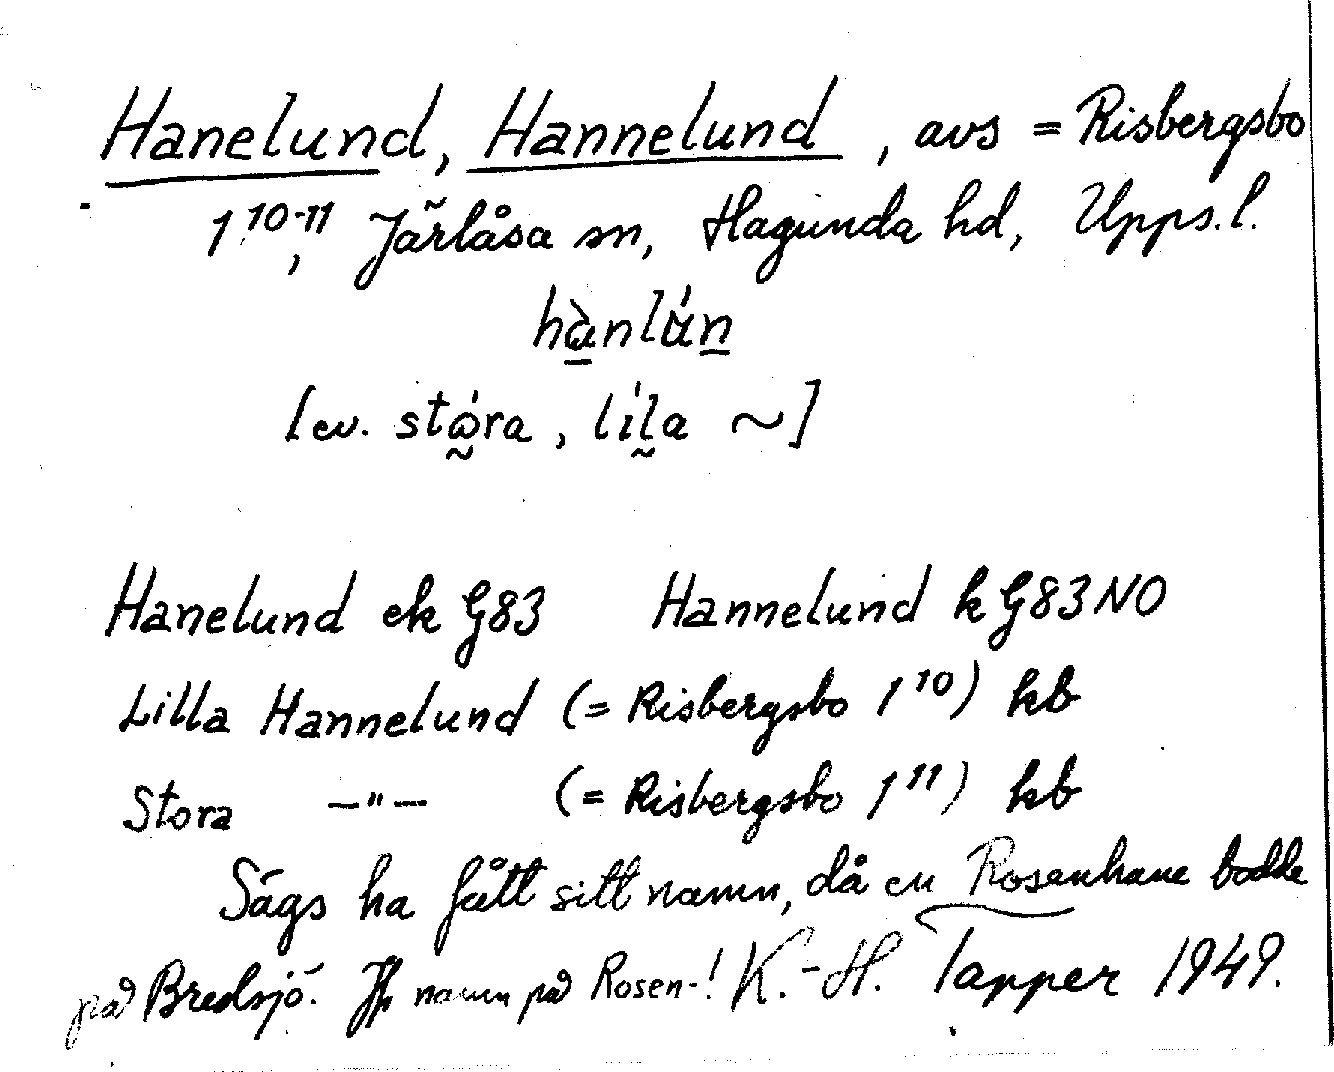 Hanelund, Hannelund, avs = Risbergsbo
1 10-11, Järlåsa sn, Hagunda hd, Upps. l.
hànlún
[ev. stóra, líla ~]
Hanelund ek G83 Hannelund k G83 NO
Lilla Hannelund (= Risbergsbo 1 10) kb
Stora —"— (= Risbergsbo 1 11) kb
Sägs ha fått sitt namn, då en Rosenhane bodde
på Bredsjö. Jfr namn på Rosen-! K.-H. Tapper 1949.